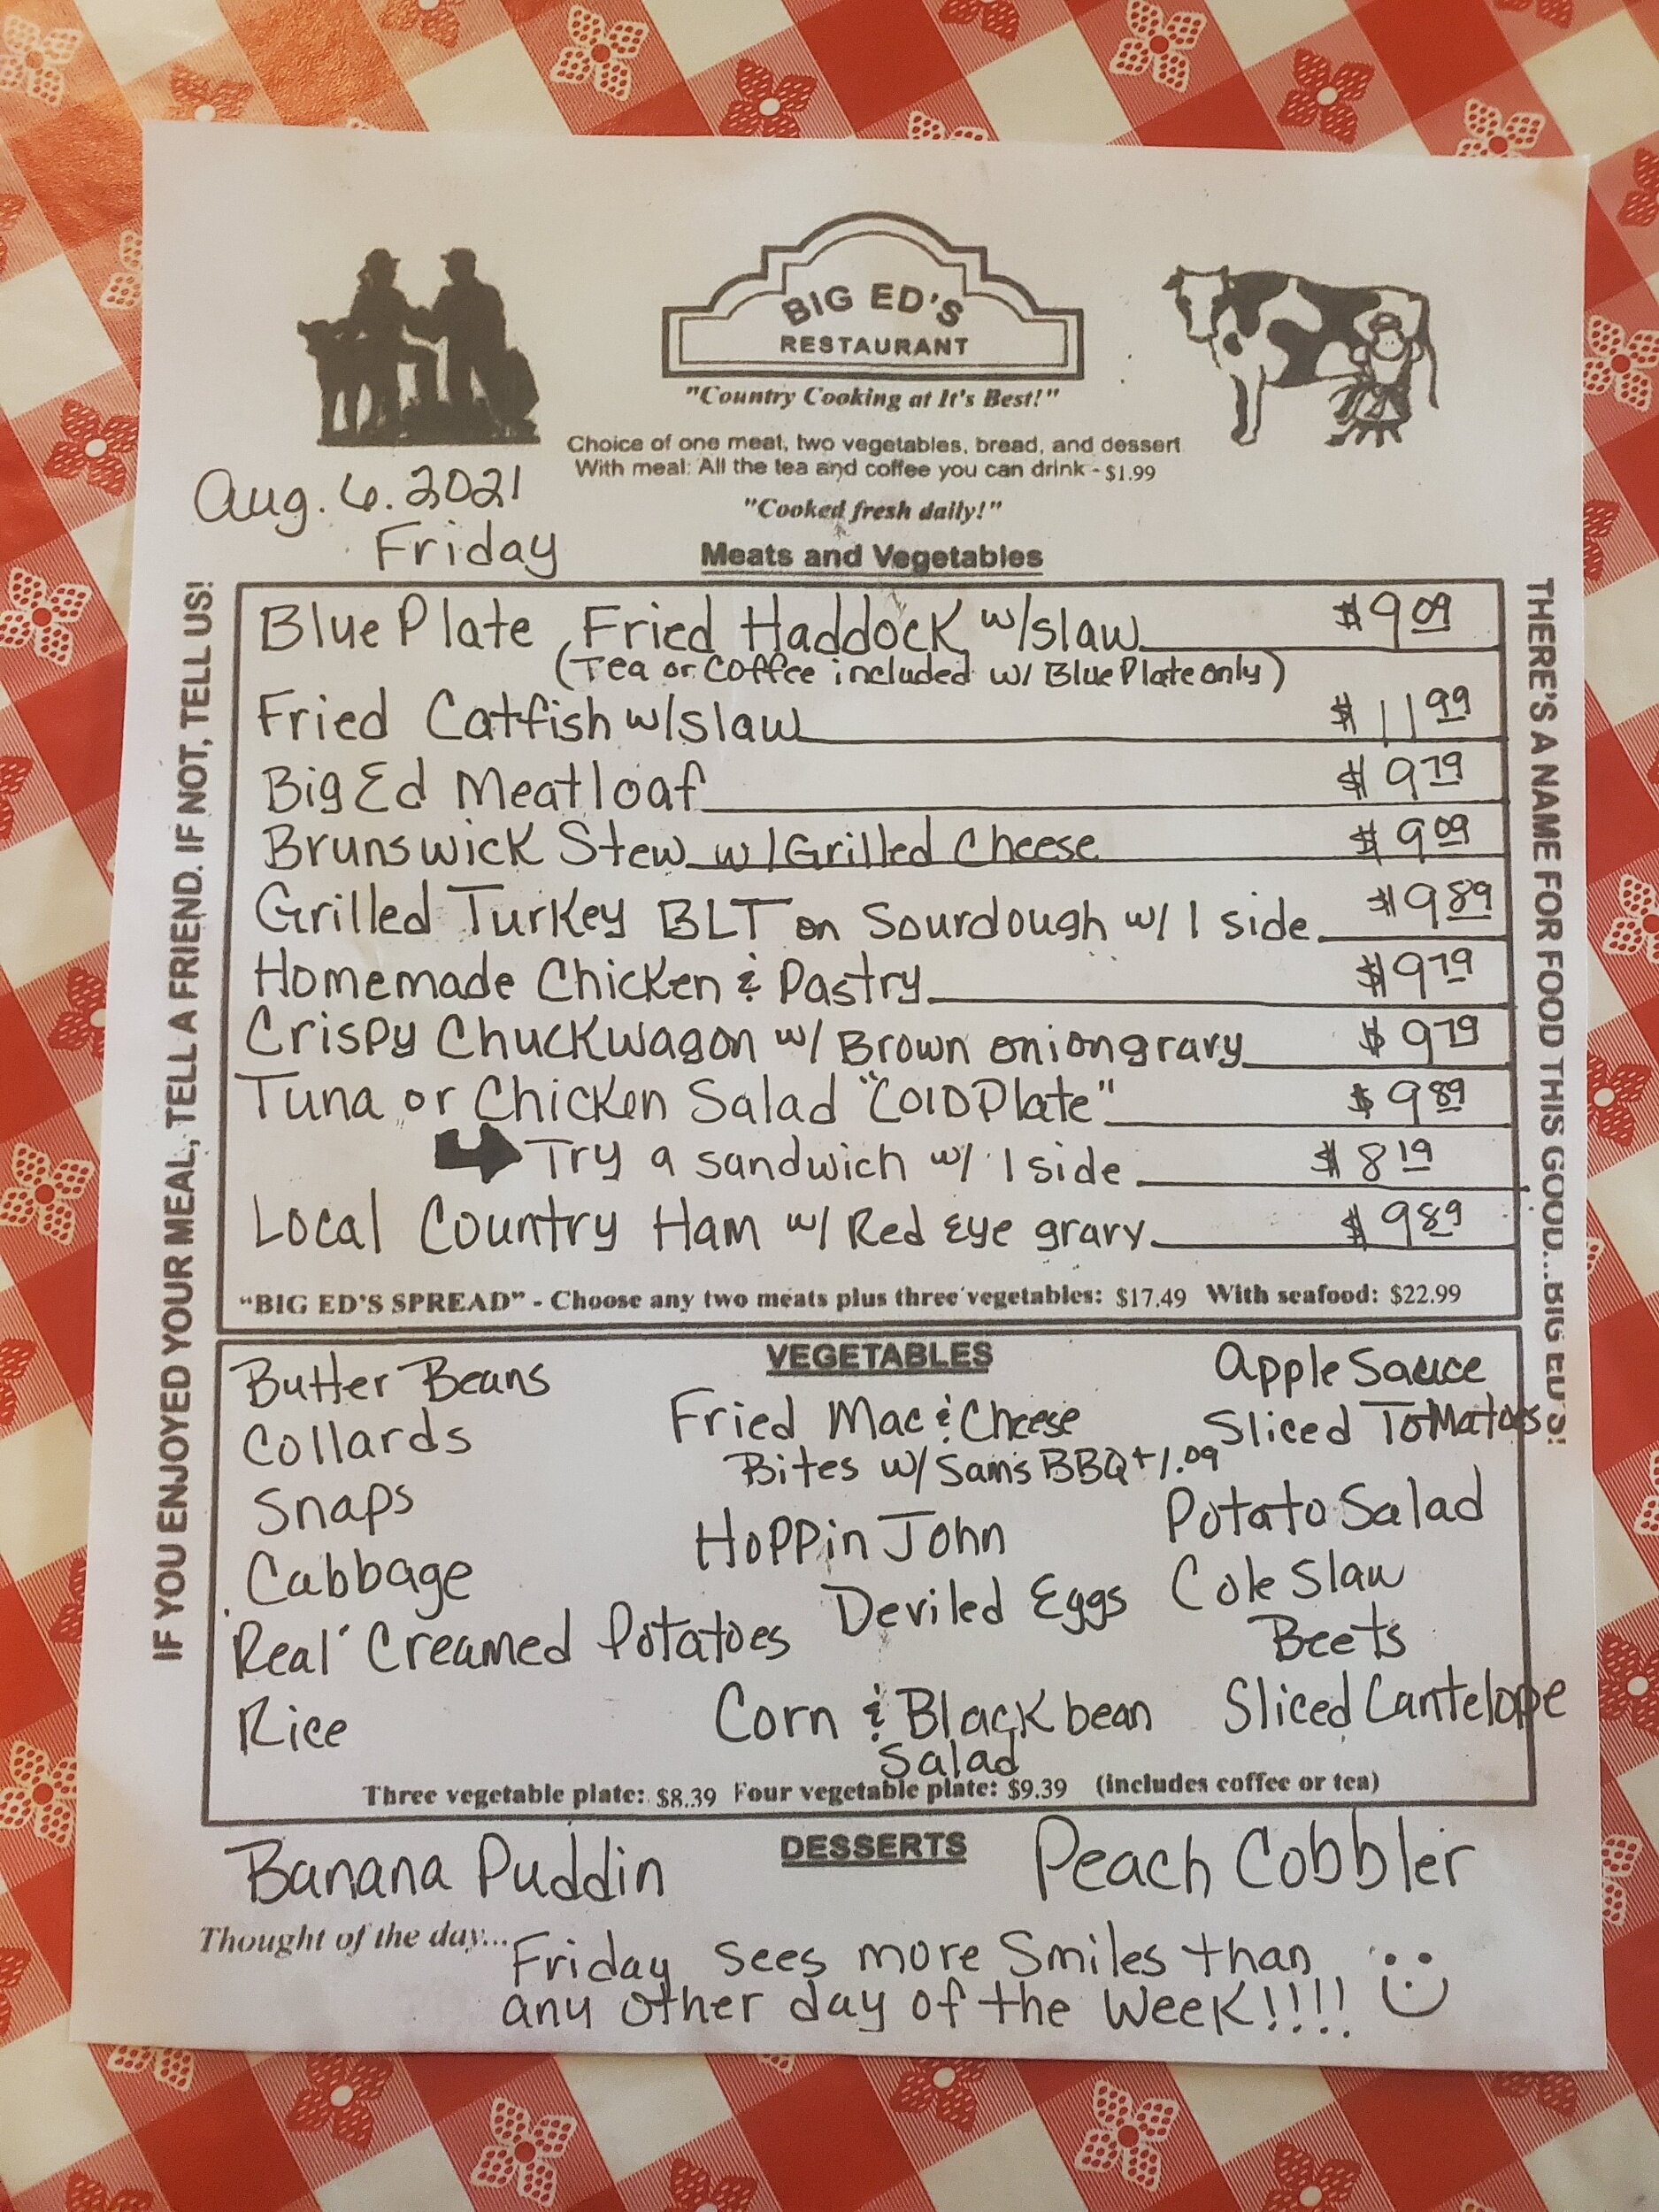 BIG ED'S
RESTAURANT
"Country Cooking at It's Best!"
Choice of one meat, two vegetables, bread, and dessert
With meal: All the tea and coffee you can drink - $1.99
"Cooked fresh daily!"
Aug. 6. 2021
Friday
Meats and Vegetables
IF YOU ENJOYED YOUR MEAL, TELL A FRIEND. IF NOT, TELL US!
Blue Plate, Fried Haddock w/slaw $9 09
(Tea or Coffee included w/ Blue Plate only)
Fried Catfish w/slaw $11 99
Big Ed Meatloaf $9 79
Brunswick Stew w/Grilled Cheese $9 09
Grilled Turkey BLT on Sourdough w/ 1 side $9 89
Homemade Chicken & Pastry $9 79
Crispy Chuckwagon w/ Brown onion gravy $9 79
Tuna or Chicken Salad "Cold Plate" $9 89
Try a sandwich w/ 1 side $8 19
Local Country Ham w/ Red Eye gravy $9 89
"BIG ED'S SPREAD" - Choose any two meats plus three vegetables: $17.49 With seafood: $22.99
THERE'S A NAME FOR FOOD THIS GOOD...BIG ED'S!
VEGETABLES
Butter Beans
Collards
Snaps
Cabbage
"Real" Creamed Potatoes
Rice
Fried Mac & Cheese
Bites w/ Sam's BBQ +1.09
Hoppin John
Deviled Eggs
Corn & Black bean
Salad
Apple Sauce
Sliced Tomatoes
Potato Salad
Cole Slaw
Beets
Sliced Cantelope
Three vegetable plate: $8.39 Four vegetable plate: $9.39 (includes coffee or tea)
DESSERTS
Banana Puddin
Peach Cobbler
Thought of the day...
Friday sees more Smiles than
any other day of the Week!!!!